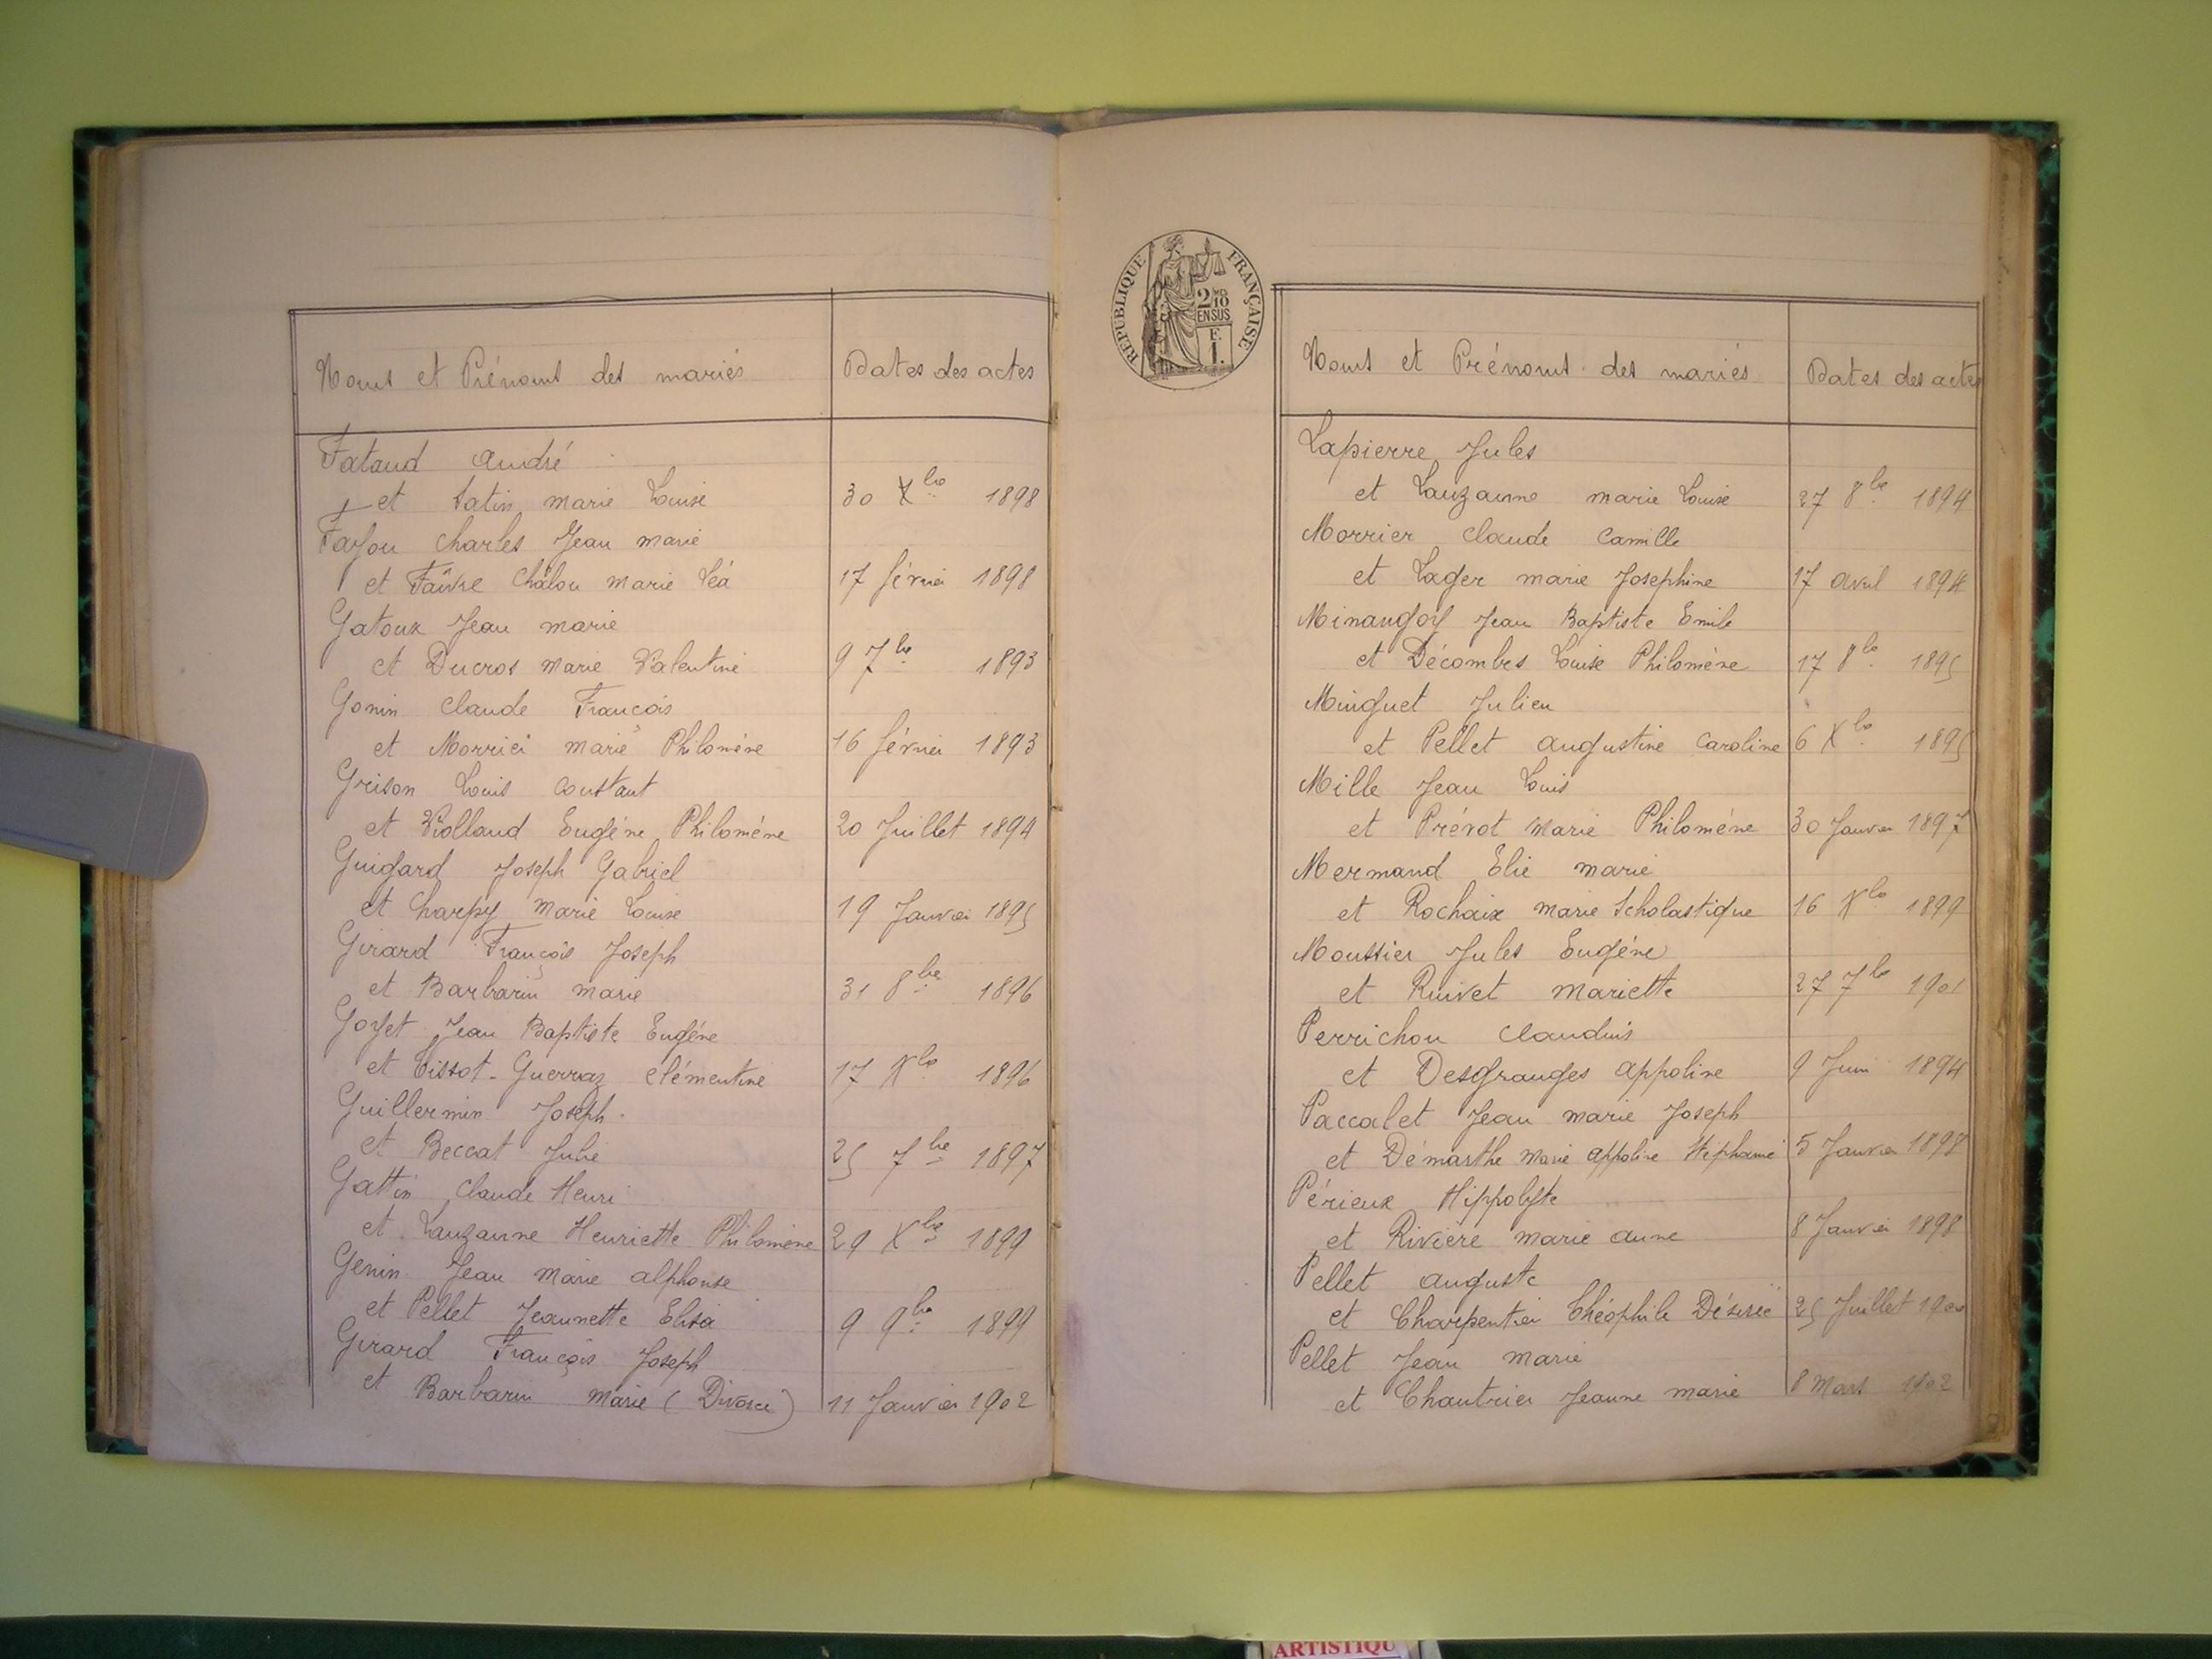 Noms et Prénoms des mariés
Dates des actes
Fataud André
et Satin marie Louise 30 Xbre 1898
Fayou Charles Jean marie
et Faivre Châlou marie Léa 17 février 1898
Gatoux Jean marie
et Ducros marie Valentine 9 7bre 1893
Gonin Claude François
et Morrier marie Philomène 16 février 1893
Grison Louis Constant
et Violland Eugène Philomène 20 Juillet 1894
Guigard Joseph Gabriel
et Charpy Marie Louise 19 Janvier 1895
Girard François Joseph
et Barbarin marie 31 8bre 1896
Goyet Jean Baptiste Eugène
et Tissot-Guerraz Clémentine 17 Xbre 1896
Guillermin Joseph
et Beccat Julie 25 7bre 1897
Gattin Claude Henri
et Lauzanne Henriette Philomène 29 Xbre 1899
Genin Jean Marie alphonse
et Pellet Jeannette Elisa 9 9bre 1899
Girard François Joseph
et Barbarin Marie (Divorce) 11 Janvier 1902
REPUBLIQUE FRANÇAISE
2/10
EN SUS
F.
1.
Noms et Prénoms des mariés
Dates des actes
Lapierre Jules
et Lauzanne marie Louise 27 8bre 1894
Morrier Claude Camille
et Lager marie Josephine 17 avril 1894
Minangoy Jean Baptiste Emile
et Décombes Louise Philomène 17 8bre 1895
Minguet Julien
et Pellet augustine Caroline 6 Xbre 1895
Mille Jean Louis
et Prévot Marie Philomène 30 Janvier 1897
Mermand Elie marie
et Rochaix marie Scholastique 16 Xbre 1899
Moussier Jules Eugène
et Ruivet Mariette 27 7bre 1901
Perrichon Claudius
et Desgranges appoline 9 Juin 1894
Paccalet Jean marie Joseph
et Démarthe Marie appoline Stéphanie 5 Janvier 1898
Périeux Hippolyte
et Rivière marie anne 8 Janvier 1898
Pellet auguste
et Charpentier Théophile Désirée 25 Juillet 1900
Pellet Jean marie
et Chautrier Jeanne marie 8 Mars 1902
ARTISTIQU